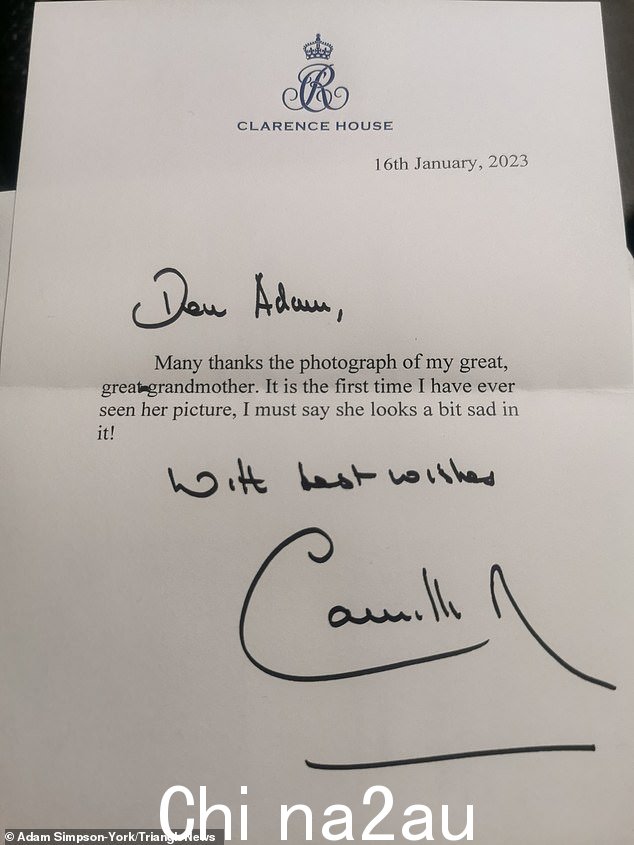 CR
CLARENCE HOUSE
16th January, 2023
Dear Adam,
Many thanks the photograph of my great,
great-grandmother. It is the first time I have ever
seen her picture, I must say she looks a bit sad in
it!
With best wishes
Camilla R
Chi na2au
© Adam Simpson-York/Triangle News